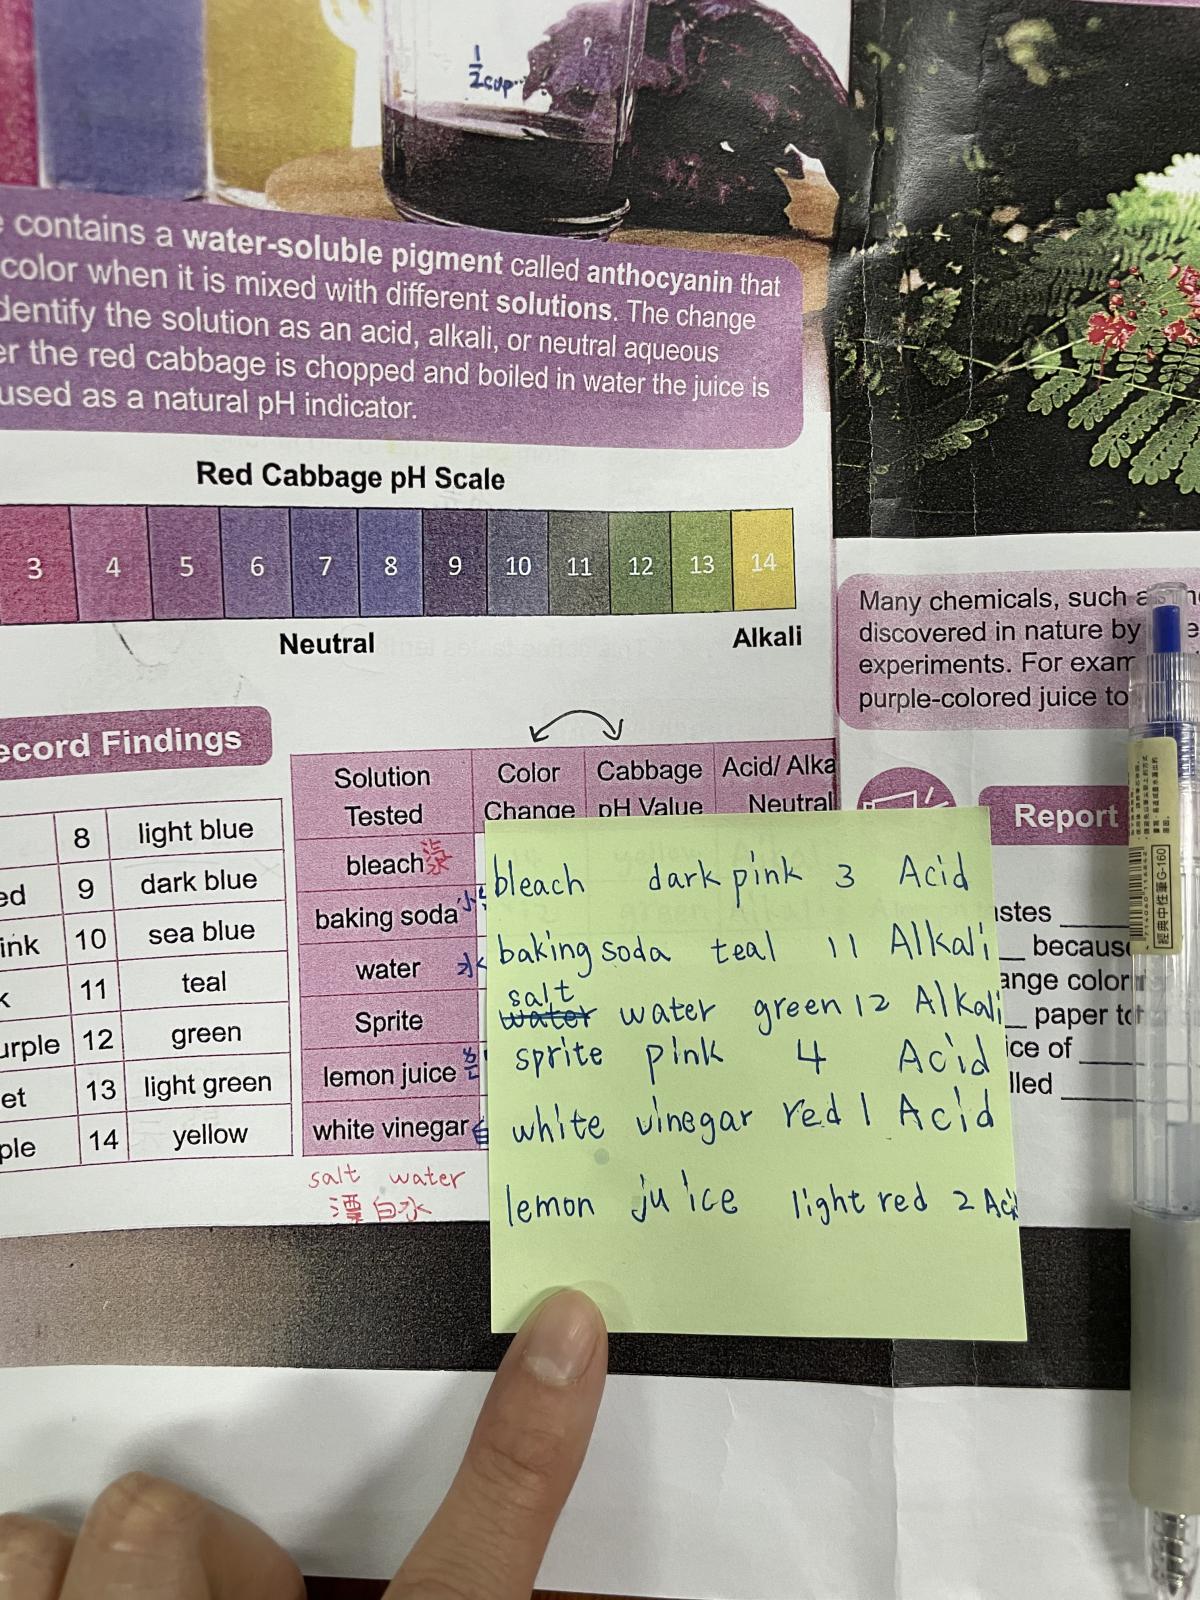 1/2 cup
contains a water-soluble pigment called anthocyanin that
color when it is mixed with different solutions. The change
dentify the solution as an acid, alkali, or neutral aqueous
er the red cabbage is chopped and boiled in water the juice is
used as a natural pH indicator.
Red Cabbage pH Scale
3 4 5 6 7 8 9 10 11 12 13 14
Neutral Alkali
Many chemicals, such as
discovered in nature by
experiments. For exam
purple-colored juice to
ecord Findings
8 light blue
ed 9 dark blue
ink 10 sea blue
k 11 teal
urple 12 green
et 13 light green
ple 14 yellow
Solution Tested Color Change Cabbage pH Value Acid/ Alka Neutral
bleach
baking soda
water 水
Sprite
lemon juice
white vinegar 白
salt water
漂白水
bleach dark pink 3 Acid
baking soda teal 11 Alkali
salt
water water green 12 Alkali
sprite pink 4 Acid
white vinegar red 1 Acid
lemon juice light red 2 Aci
Report
stes
because
ange color
paper to
ice of
lled
經典中性筆G-160